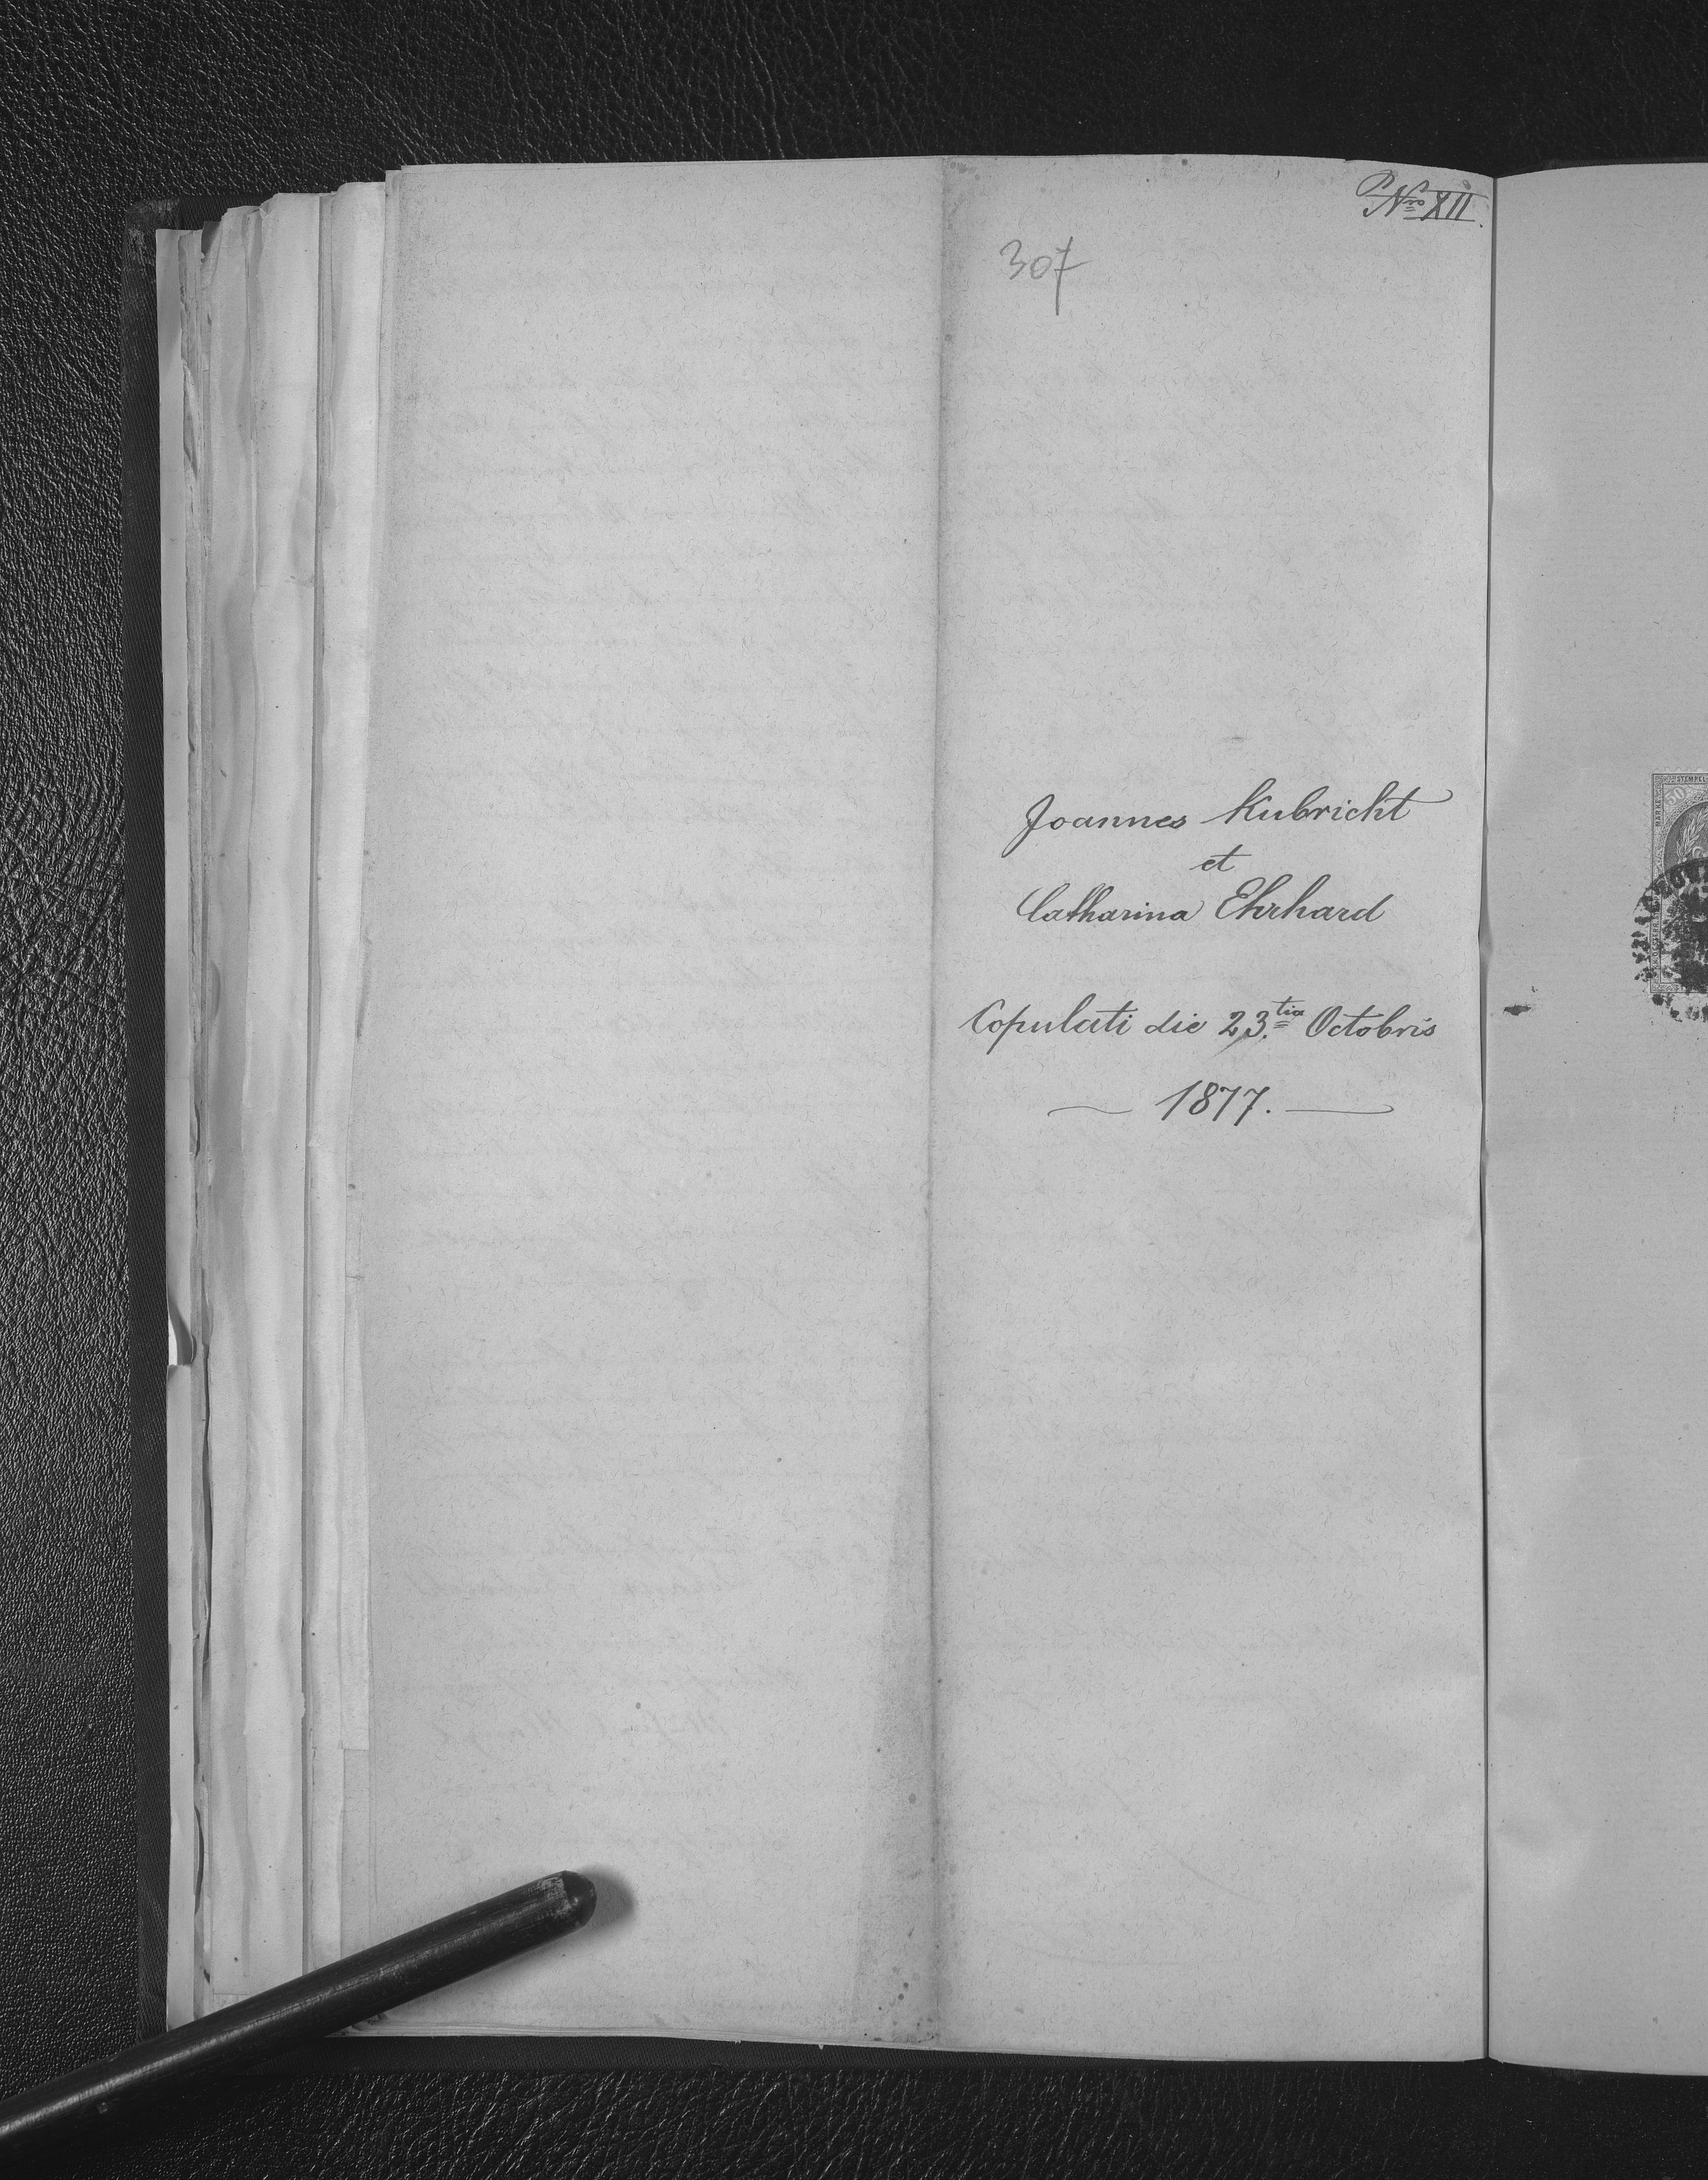 P Nro XII.
307
Joannes Kubricht
et
Catharina Ehrhard
Copulati die 23.tia Octobris
1877.
STEMPEL
50